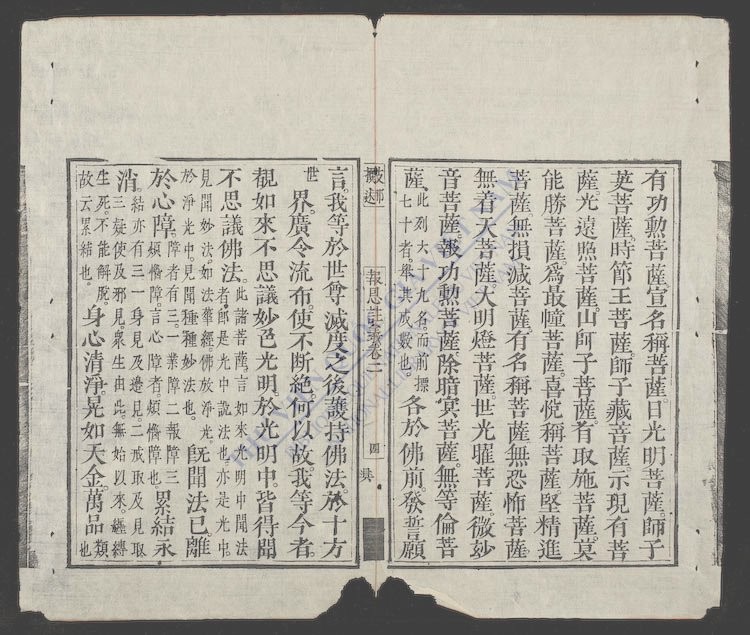 有功勲菩薩。宣名稱菩薩。日光明菩薩。師子
英菩薩。時節王菩薩。師子藏菩薩。示現有菩
薩。光遠照菩薩。山師子菩薩。有取施菩薩。莫
能勝菩薩。爲最幢菩薩。喜悅稱菩薩。堅精進
菩薩。無損減菩薩。有名稱菩薩。無恐怖菩薩。
無着天菩薩。大明燈菩薩。世光曜菩薩。微妙
音菩薩。報功勲菩薩。除暗冥菩薩。無等倫菩
薩。此列六十九名而前標
七十者。舉其成數也。各於佛前。發誓願
報恩註卷二
四
言。我等於世尊滅度之後。護持佛法。於十方
世界。廣令流布。使不斷絕。何以故。我等今者。
覩如來不思議妙色光明。於光明中。皆得聞
不思議佛法。此諸菩薩。言如來光明中聞法
者。卽是光中說法也。亦是光中。
見聞妙法。如法華經佛放淨光。
於淨光中。見聞種種妙法也。旣聞法已。離
於心障。障者有三。一業障二報障三
煩惱障。言心障者。煩惱障也。累結永
消。結亦有三。一身見及邊見二戒取及見取
三疑使及邪見。衆生由此。無始以來。纏縛
生死。不能解脫。
故云累結也。身心清淨。晃如天金。萬品類也